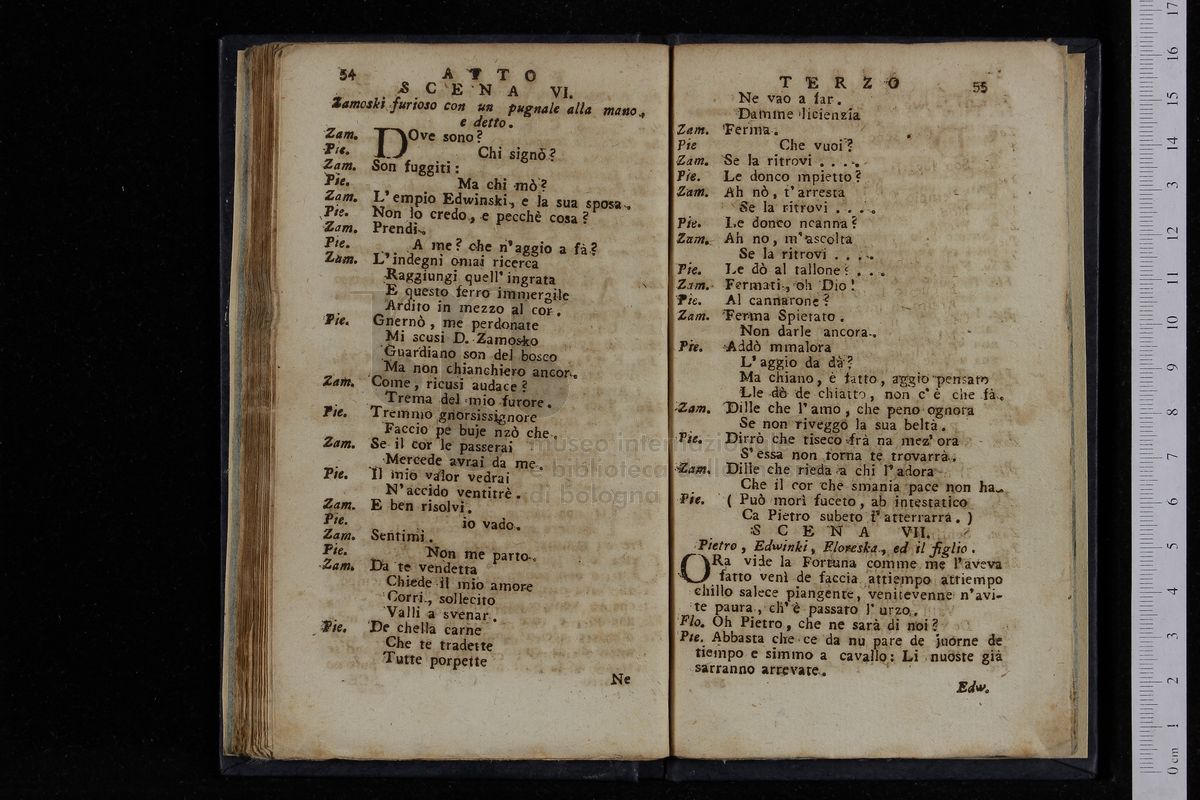 54
ATTO
SCENA VI.
Zamoski furioso con un pugnale alla mano,
e detto.
Zam. DOve sono?
Pie. Chi signò?
Zam. Son fuggiti:
Pie. Ma chi mò?
Zam. L'empio Edwinski, e la sua sposa.
Pie. Non lo credo, e pecchè cosa?
Zam. Prendi.
Pie. A me? che n'aggio a fà?
Zam. L'indegni omai ricerca
Raggiungi quell'ingrata
E questo ferro immergile
Ardito in mezzo al cor.
Pie. Gnernò, me perdonate
Mi scusi D. Zamosko
Guardiano son del bosco
Ma non chianchiero ancor.
Zam. Come, ricusi audace?
Trema del mio furore.
Pie. Tremmo gnorsissignore
Faccio pe buje nzò che.
Zam. Se il cor le passerai
Mercede avrai da me.
Pie. Il mio valor vedrai
N'accido ventitrè.
Zam. E ben risolvi.
Pie. io vado.
Zam. Sentimi.
Pie. Non me parto.
Zam. Da te vendetta
Chiede il mio amore
Corri, sollecito
Valli a svenar.
Pie. De chella carne
Che te tradette
Tutte porpette
Ne
TERZO
55
Ne vao a far.
Damme licienzia
Zam. Ferma.
Pie Che vuoi?
Zam. Se la ritrovi ....
Pie. Le donco mpietto?
Zam. Ah nò, t'arresta
Se la ritrovi ....
Pie. Le donco ncanna?
Zam. Ah no, m'ascolta
Se la ritrovi ....
Pie. Le dò al tallone? ...
Zam. Fermati, oh Dio!
Pie. Al cannarone?
Zam. Ferma Spietato.
Non darle ancora.
Pie. Addò mmalora
L'aggio da dà?
Ma chiano, è fatto, aggio pensato
Lle dò de chiatto, non c'è che fà.
Zam. Dille che l'amo, che peno ognora
Se non riveggo la sua beltà.
Pie. Dirrò che tiseco frà na mez' ora
S'essa non torna te trovarrà.
Zam. Dille che rieda a chi l'adora
Che il cor che smania pace non ha.
Pie. (Può morì fuceto, ab intestatico
Ca Pietro subeto t'atterrarrà.)
SCENA VII.
Pietro, Edwinki, Floreska, ed il figlio.
ORa vide la Fortuna comme me l'aveva
fatto venì de faccia attiempo attiempo
chillo salece piangente, venitevenne n'avi-
te paura, ch'è passato l'urzo.
Flo. Oh Pietro, che ne sarà di noi?
Pie. Abbasta che ce da nu pare de juorne de
tiempo e simmo a cavallo: Li nuoste già
sarranno arrevate.
Edw.
museo internazio
e biblioteca
di bologna
0 cm 1 2 3 4 5 6 7 8 9 10 11 12 13 14 15 16 17